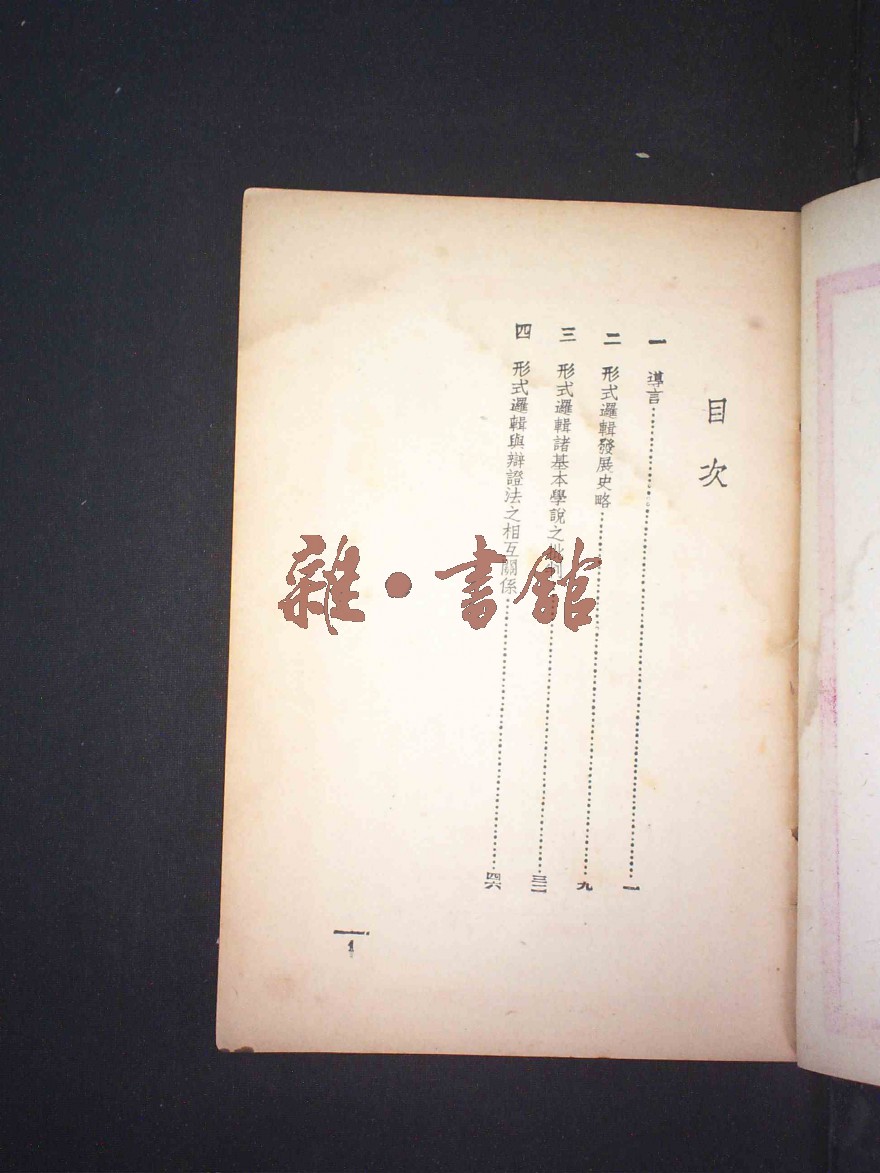 目次
一 導言……一
二 形式邏輯發展史略……九
三 形式邏輯諸基本學說之批判……三二
四 形式邏輯與辯證法之相互關係……四六
1
雜·書館